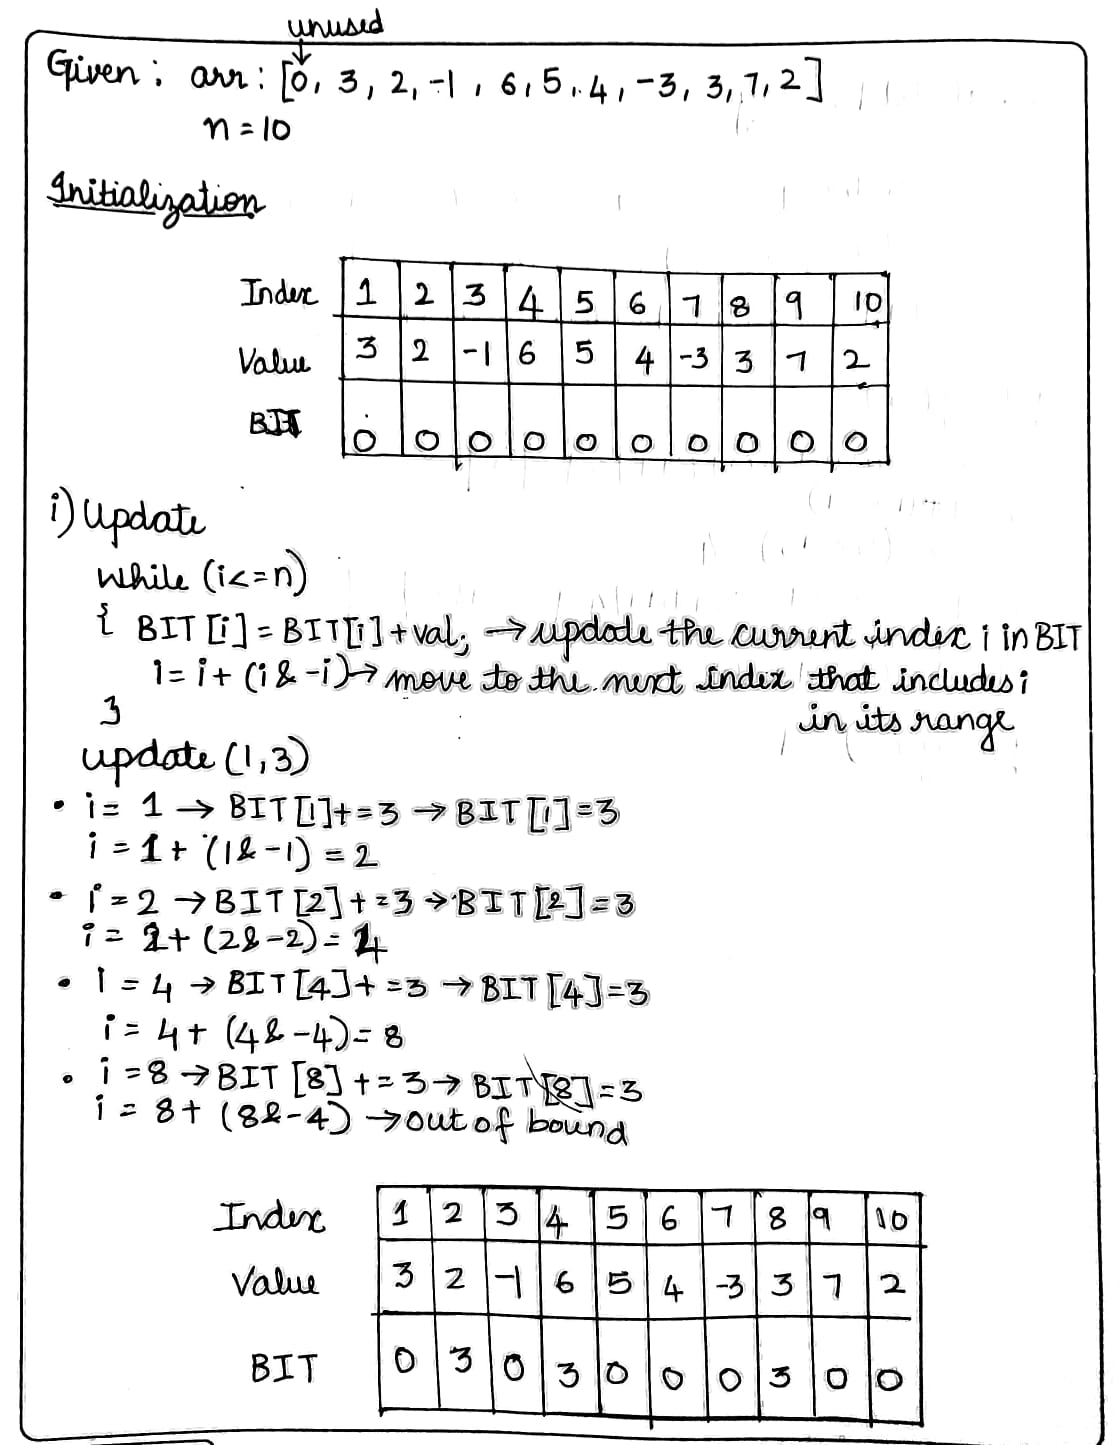 unused
Given : arr : [0, 3, 2, -1, 6, 5, 4, -3, 3, 7, 2]
n = 10
Initialization
Index 1 2 3 4 5 6 7 8 9 10
Value 3 2 -1 6 5 4 -3 3 7 2
BIT 0 0 0 0 0 0 0 0 0 0
i) Update
while (i<=n)
{ BIT[i] = BIT[i] + val; → update the current index i in BIT
i = i + (i & -i) → move to the next index that includes i
in its range
}
update (1,3)
• i = 1 → BIT[1] += 3 → BIT[1] = 3
i = 1 + (1 & -1) = 2
• i = 2 → BIT[2] += 3 → BIT[2] = 3
i = 2 + (2 & -2) = 4
• i = 4 → BIT[4] += 3 → BIT[4] = 3
i = 4 + (4 & -4) = 8
• i = 8 → BIT[8] += 3 → BIT[8] = 3
i = 8 + (8 & -4) → out of bound
Index 1 2 3 4 5 6 7 8 9 10
Value 3 2 -1 6 5 4 -3 3 7 2
BIT 0 3 0 3 0 0 0 3 0 0